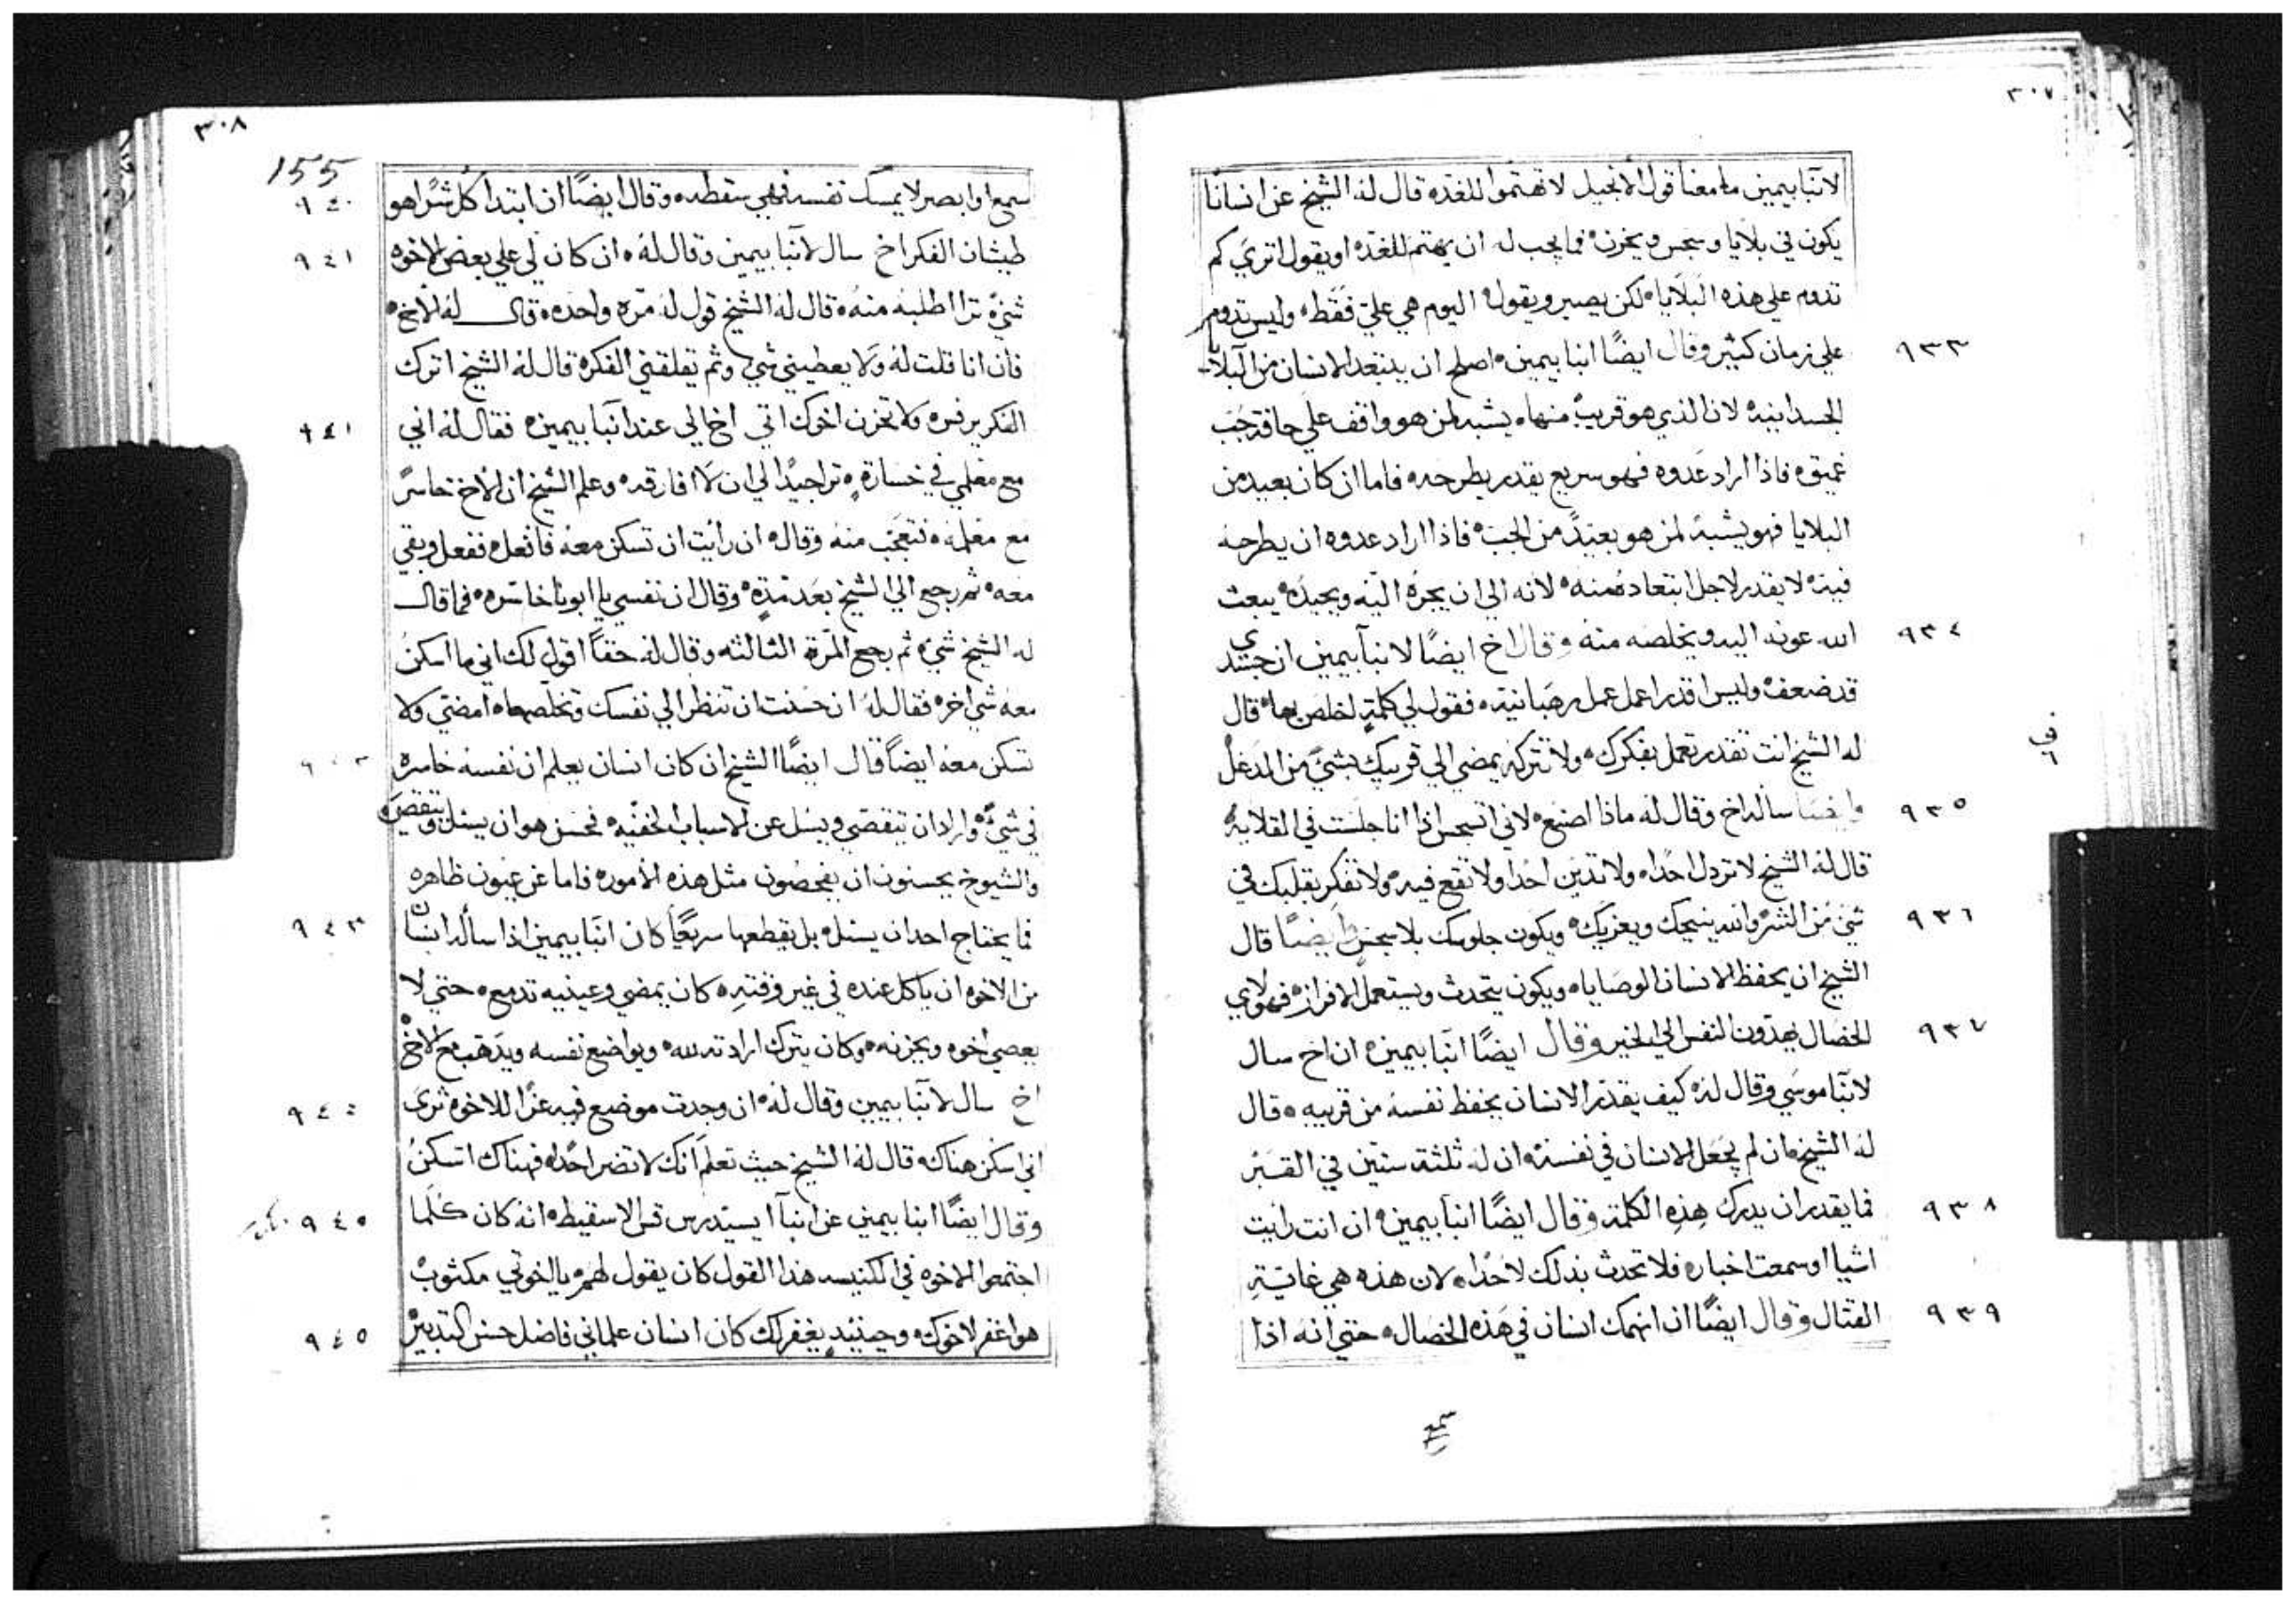 ٣٠٧
لانبا بيمين ما معنا قول الانجيل لا تهتموا للغده قال له الشيخ عن انسانا
يكون في بلايا وسجس ويحزن فما يجب له ان يهتم للغده او يقول اتري كم
تدوم علي هذه البلايا لكن يصبر ويقول اليوم هي علي فقط وليس تدوم
علي زمان كثير وقال ايضًا انبا بيمين اصلح ان يبتعد الانسان من البلايا ٩٣٣
الجسدانيه لان الذي هو قريب منها يشبه لمن هو واقف علي حافة جب
عميق فاذا اراد عدوه فهو سريع يقدر يطرحه فاما ان كان بعيد من
البلايا فهو يشبه لمن هو بعيد من الجب فاذا اراد عدوه ان يطرحه
فيه لا يقدر لاجل ابتعاده منه لانه الي ان يجره اليه ويجيده يبعث
الله عونه اليه ويخلصه منه وقال اخ ايضًا لانبا بيمين ان جسدي ٩٣٤
قد ضعف وليس اقدر اعمل عمل رهبانية فقول لي كلمة لخلص بها قال
له الشيخ انت تقدر تعمل بفكرك ولا تتركه يمضي الي قريبك بشي من الدغل
ف ٦
وايضا ساله اخ وقال له ماذا اصنع لاني اتسجس اذا انا جلست في القلاية ٩٣٥
قال له الشيخ لا تردل احدا ولا تدين احدا ولا تقع فيه ولا تفكر بقلبك في
شي من الشر والله ينيحك ويعزيك ويكون جلوسك بلا سجس وايضا قال ٩٣٦
الشيخ ان يحفظ الانسان الوصايا ويكون يتحدث ويستعمل الافراز فهولاي
الخصال يهدون النفس الي الخير وقال ايضًا انبا بيمين ان اخ سال ٩٣٧
لانبا موسي وقال له كيف يقدر الانسان يحفظ نفسه من قريبه قال
له الشيخ ان لم يجعل الانسان في نفسه ان له ثلثة سنين في القبر
فما يقدر ان يدرك هذه الكلمة وقال ايضًا انبا بيمين ان انت رايت ٩٣٨
اشيا او سمعت اخبار فلا تحدث بذلك لاحدا لان هذه هي غاية
القتال وقال ايضًا ان انهمك انسان في هذه الخصال حتي انه اذا ٩٣٩
٣٠٨
155
سمع او ابصر لا يمسك نفسه فهي سقطه وقال ايضًا ان ابتدا كل شرا هو ٩٤٠
طيشان الفكر اخ سال لانبا بيمين وقال له ان كان لي علي بعض الاخوه ٩٤١
شي ترا اطلبه منه قال له الشيخ قول له مرة واحده قال له الاخ
فان انا قلت له ولا يعطيني شي وثم تقلقني الفكر قال له الشيخ اترك
الفكر يرفس ولا تحزن اخوك اتي اخ الي عند انبا بيمين فقال له اني ٩٤١
مع معلمي في خسارة تراجيدًا لي ان لا افارقه وعلم الشيخ ان الاخ خاسر
مع معلمه فتعجب منه وقال ان رايت ان تسكن معه فافعل ففعل وبقي
معه ثم رجع الي الشيخ بعد مدة وقال ان نفسي يا ابونا خاسره فما قال
له الشيخ شي ثم رجع المرة الثالثه وقال له حقًا اقول لك اني ما اسكن
معه شي اخر فقال له ان حسنت ان تنظر الي نفسك وتخلصها امضي ولا
تسكن معه ايضًا قال ايضًا الشيخ ان كان انسان يعلم ان نفسه خاسره
في شي واراد ان يتفقصي ويسل عن الاسباب الخفيه فحسن هو ان يسل
والشيوخ يحسنون ان يفحصون مثل هذه الامور فاما عن عيون ظاهره
فما يحتاج احد ان يسل بل يقطعها سريعًا كان انبا بيمين اذا ساله انسان ٩٤٣
من الاخوه ان ياكل عنده في غير وقته كان يمضي وعينيه تدمع حتي لا
يعصي اخوه ويحزنه وكان يترك ارادته لله ويواضع نفسه ويدهب مع الاخ
اخ سال لانبا بيمين وقال له ان وجدت موضع فيه عزا للاخوه تري ٩٤٤
اني اسكن هناك قال له الشيخ حيث تعلم انك لا تضر احدا فهناك اتسكن
وقال ايضًا انبا بيمين عن انبا ايسيدرس قس الاسقيط انه كان كلما ٩٤٥
اجتمعوا الاخوه في الكنيسه هذا القول كان يقول لهم يا اخوتي مكتوب
هو اغفر لاخوك وحينيد يغفر لك كان انسان علماني فاضل حسن التدبير ٩٤٥